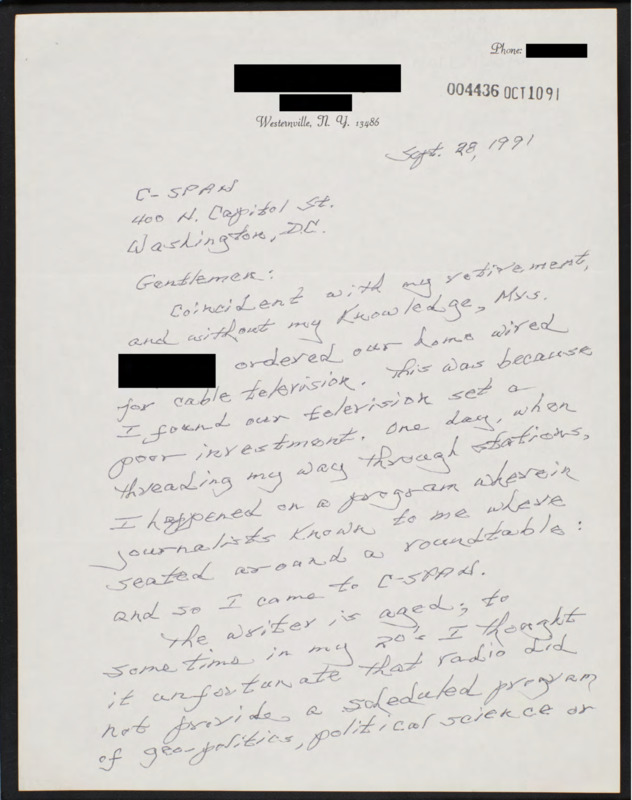 Phone:
004436 OCT1091
Westernville, N. Y. 13486
Sept. 28, 1991
C-SPAN
400 N. Capitol St.
Washington, D.C.
Gentlemen:
Coincident with my retirement,
and without my knowledge, Mrs.
ordered our home wired
for cable television. This was because
I found our television set a
poor investment. One day, when
threading my way through stations,
I happened on a program wherein
journalists known to me where
seated around a roundtable:
and so I came to C-SPAN.
The writer is aged; to
some time in my 20's I thought
it unfortunate that radio did
not provide a scheduled program
of geo-politics, political science or